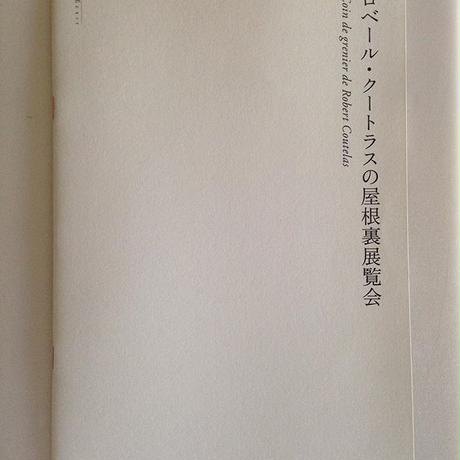 ロベール・クートラスの屋根裏展覧会
Coin de grenier de Robert Coutelas